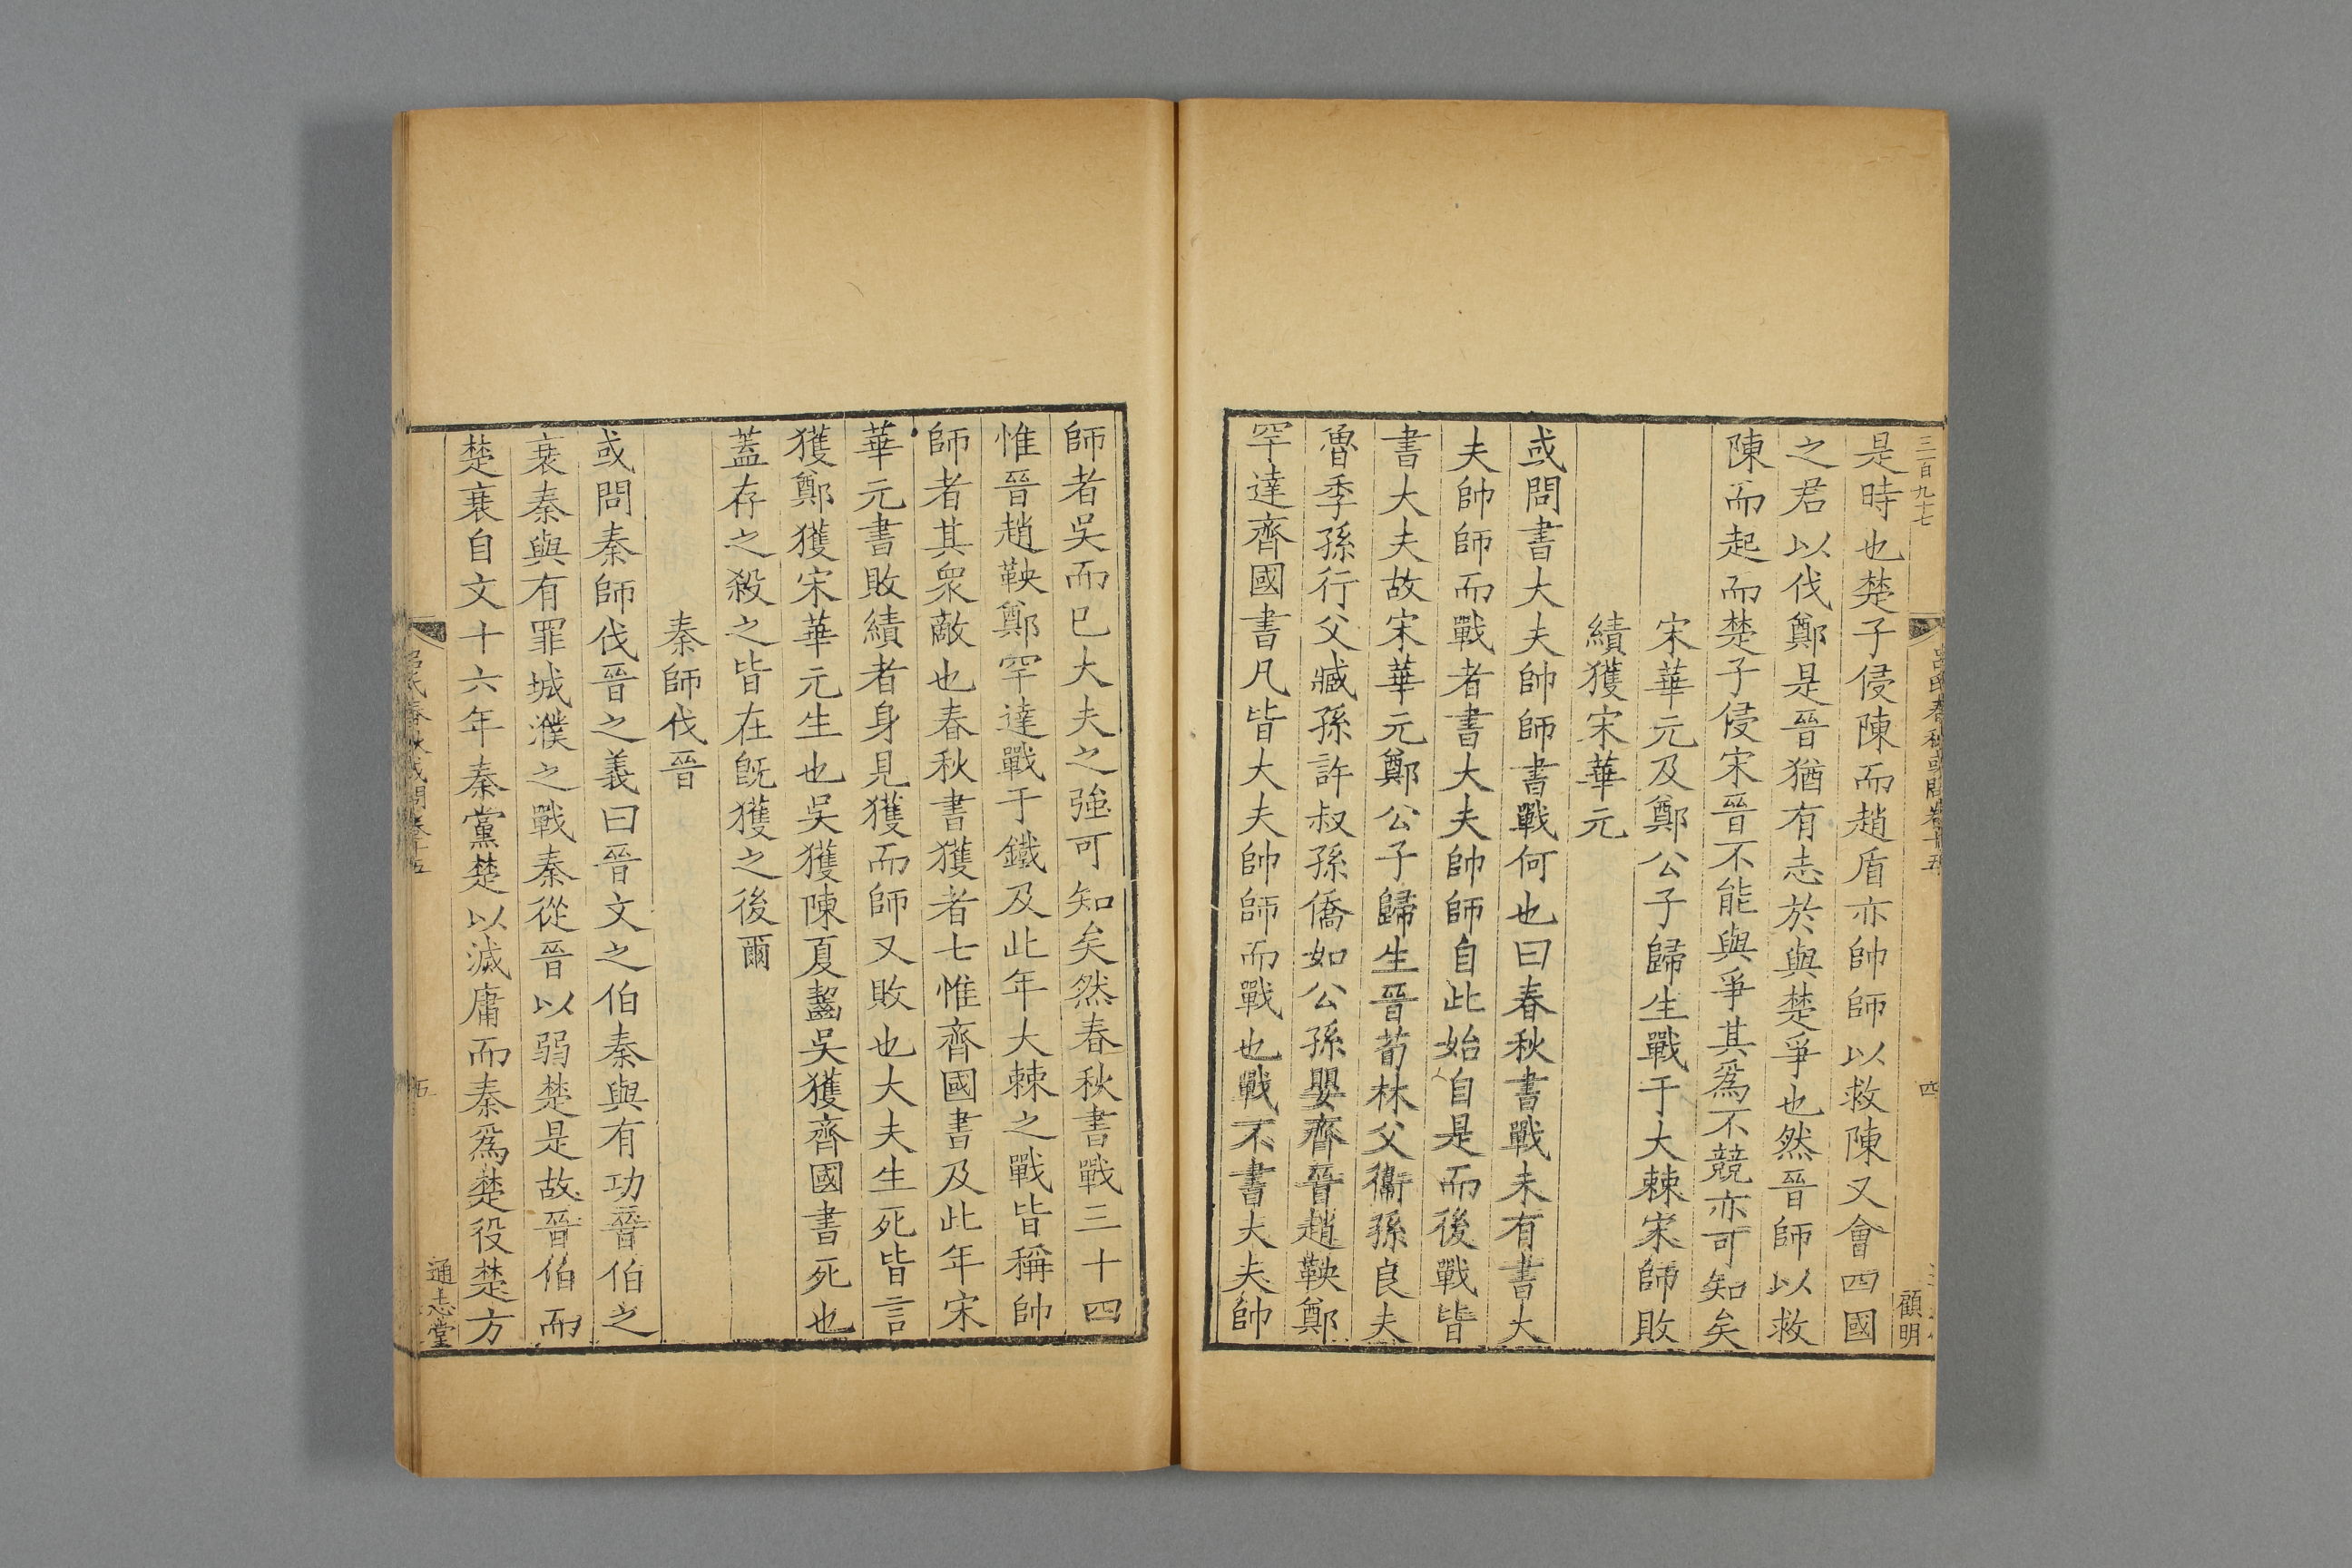 三百九十七
四
顧明
是時也楚子侵陳而趙盾亦帥師以救陳又會四國
之君以伐鄭是晉猶有志於與楚爭也然晉師以救
陳而起而楚子侵宋晉不能與爭其爲不競亦可知矣
宋華元及鄭公子歸生戰于大棘宋師敗
績獲宋華元
或問書大夫帥師書戰何也曰春秋書戰未有書大
夫帥師而戰者書大夫帥師自此始自是而後戰皆
書大夫故宋華元鄭公子歸生晉荀林父衞孫良夫
魯季孫行父臧孫許叔孫僑如公孫嬰齊晉趙鞅鄭
罕達齊國書凡皆大夫帥師而戰也戰不書大夫帥
師者吳而已大夫之強可知矣然春秋書戰三十四
惟晉趙鞅鄭罕達戰于鐵及此年大棘之戰皆稱帥
師者其衆敵也春秋書獲者七惟齊國書及此年宋
華元書敗績者身見獲而師又敗也大夫生死皆言
獲鄭獲宋華元生也吳獲陳夏齧吳獲齊國書死也
蓋存之殺之皆在旣獲之後爾
秦師伐晉
或問秦師伐晉之義曰晉文之伯秦與有功晉伯之
衰秦與有罪城濮之戰秦從晉以弱楚是故晉伯而
楚衰自文十六年秦黨楚以滅庸而秦爲楚役楚方
通志堂